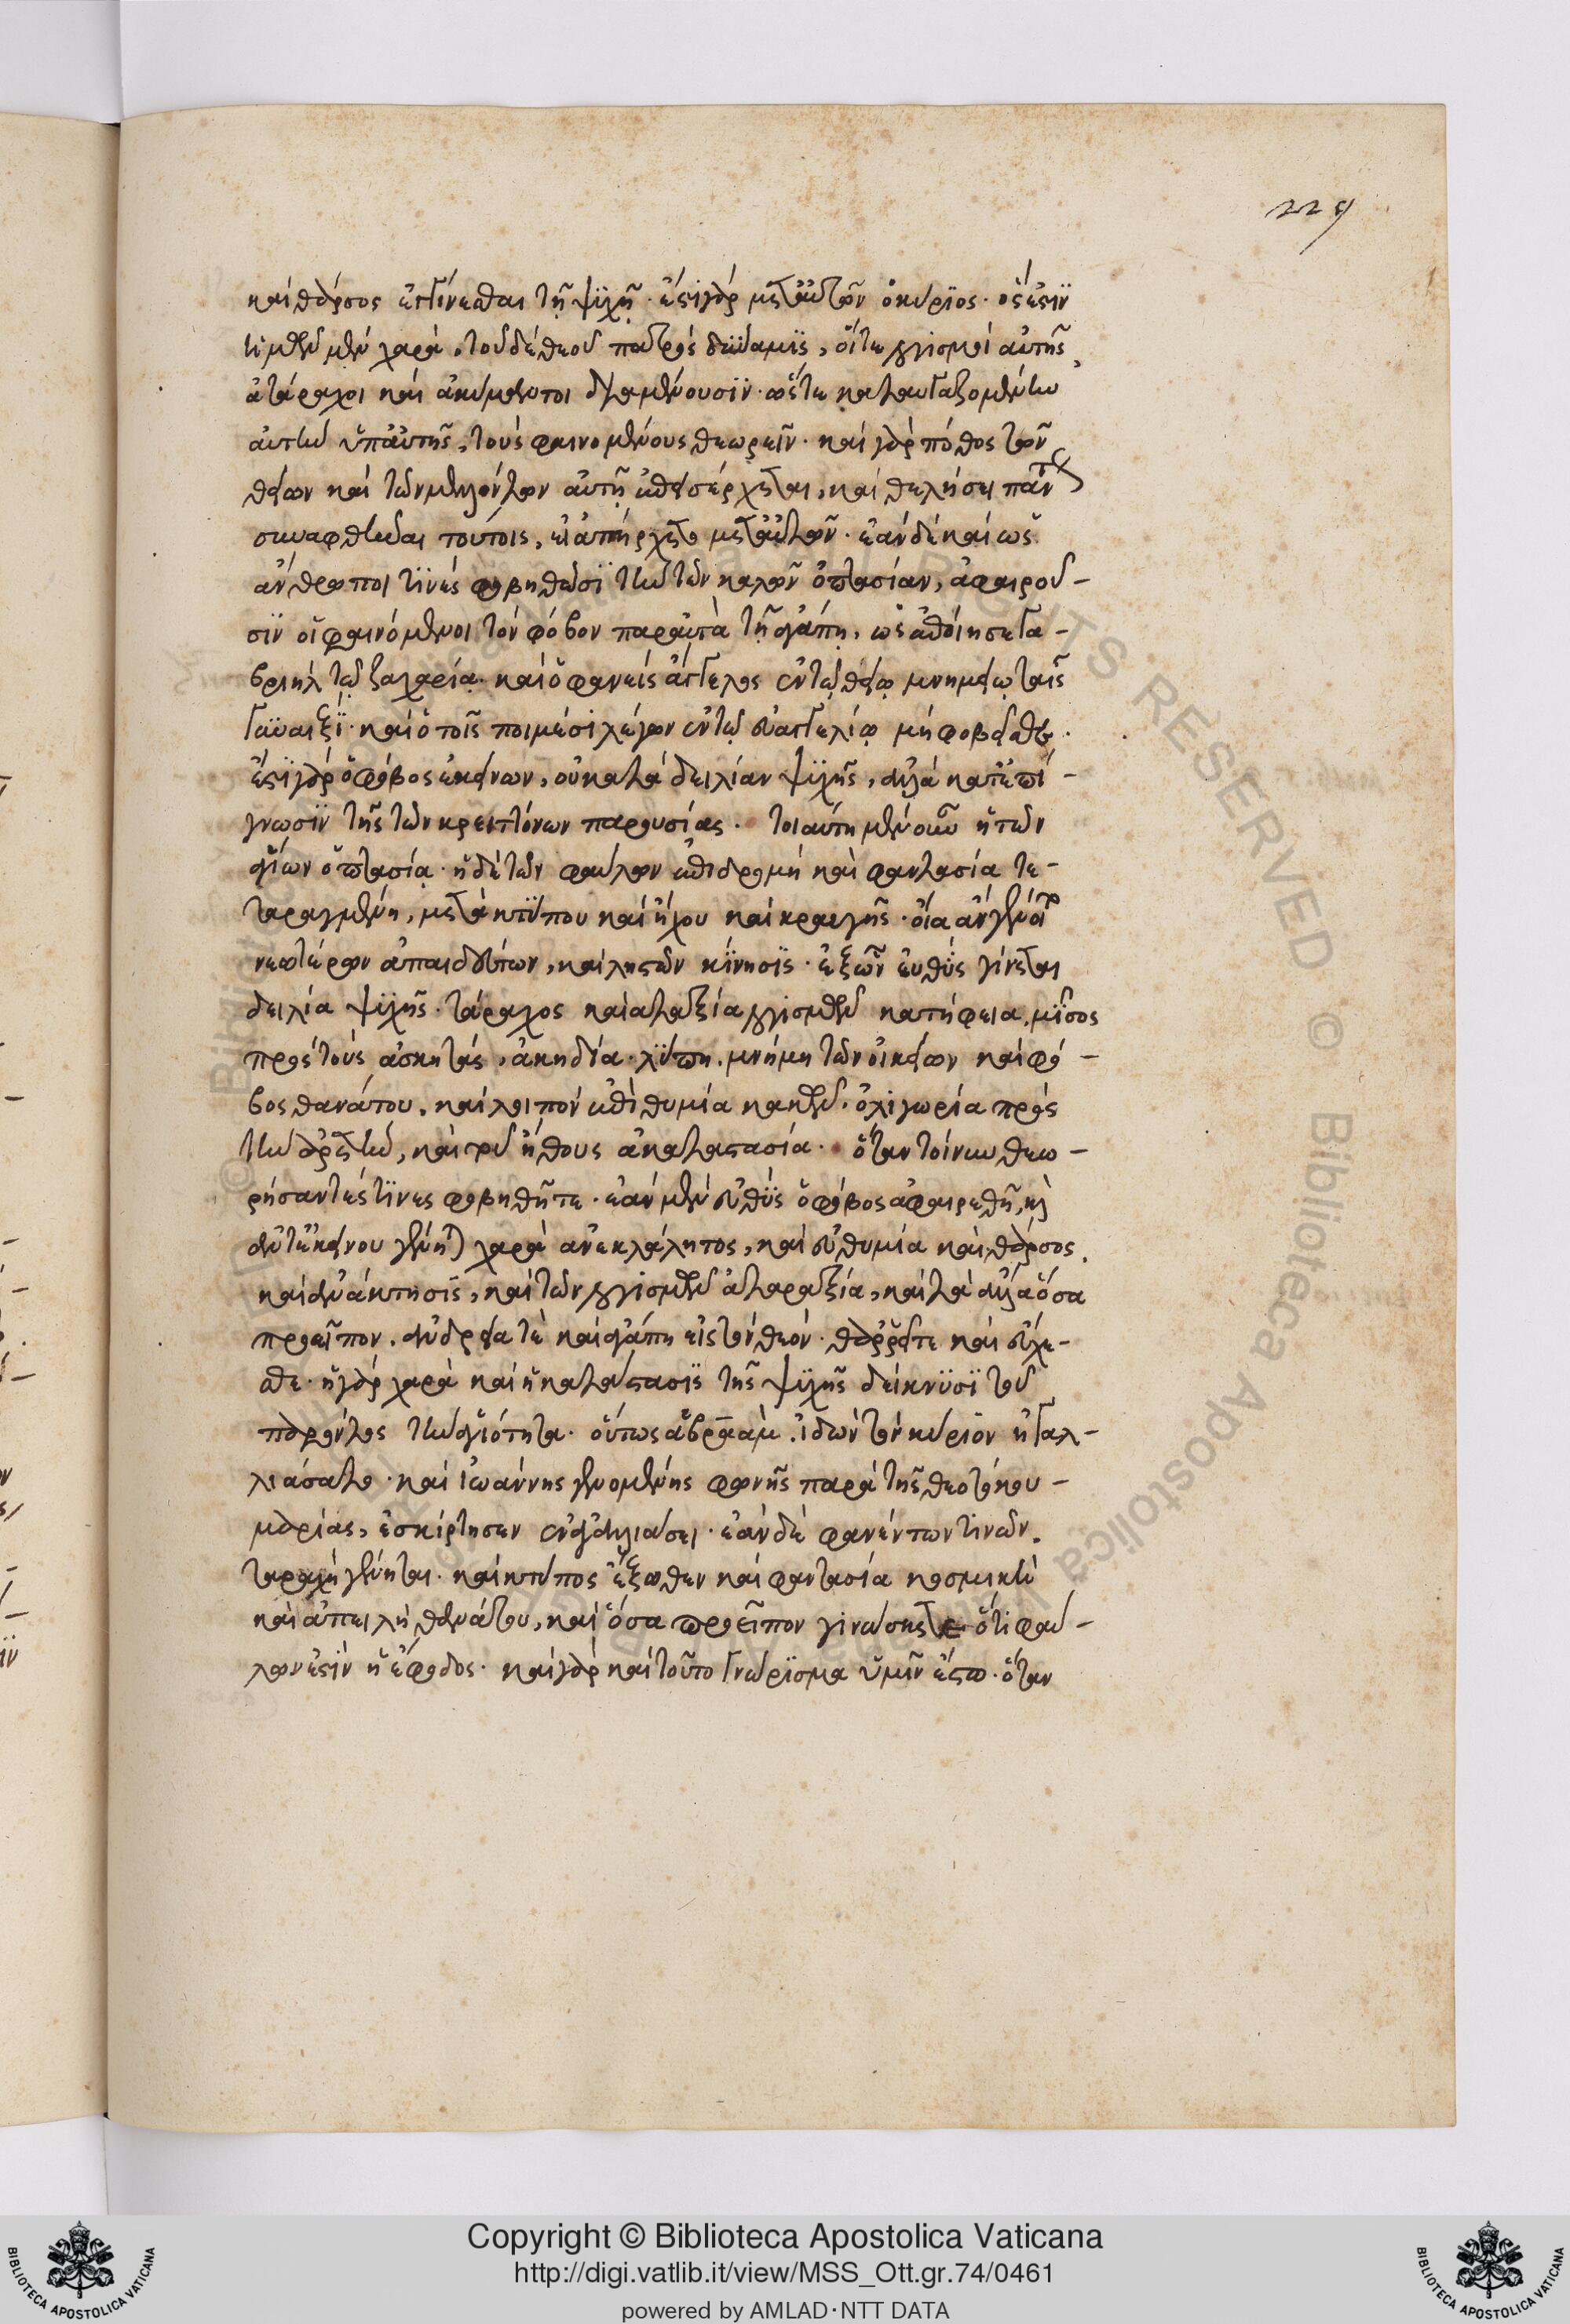 229
καὶ θάρσος ἐγγίνεσθαι τῇ ψϋχῇ· ἔστι γὰρ μετ' αὐτῶν ὁ κύρϊος· ὅς ἐστϊν
ἡμῶν μὲν χαρὰ, τοῦ δὲ θεοῦ πατρὸς δύναμϊς, οἵ τε λογισμοὶ αὐτῆς
ἀτάραχοι καὶ ἀκύμαντοι διαμένουσϊν· ὥστε καταυγαζομένην
αὐτὴν ὑπ' αὐτῆς, τοὺς φαινομένους θεωρεῖν· καὶ γὰρ πόθος τῶν
θείων καὶ τῶν μελλόντων αὐτῇ ἐπεισέρχεται, καὶ θελήσει πάντως
συναφθῆναι τούτοις, εἰ ἀπήρχετο μετ' αὐτῶν· ἐὰν δὲ καὶ ὡς
ἄνθρωποι τϊνὲς φοβηθῶσϊ τὴν τῶν καλῶν ὀπτασίαν, ἀφαιροῦ-
σϊν οἱ φαινόμενοι τὸν φόβον παραυτὰ τῇ ἀγάπῃ, ὡς ἐποίησε Γα-
βριὴλ τῷ ζαχαρίᾳ· καὶ ὁ φανεὶς ἄγγελος ἐν τῷ θείῳ μνημείῳ ταῖς
γυναιξΐ· καὶ ὁ τοῖς ποιμέσι λέγων ἐν τῷ εὐαγγελίῳ μὴ φοβεῖσθε·
ἔστϊ γὰρ ὁ φόβος ἐκείνων, οὐ κατὰ δειλίαν ψϋχῆς, ἀλλὰ κατ' ἐπί-
γνωσϊν τῆς τῶν κρειττόνων παρουσίας· τοιαύτη μὲν οὖν ἡ τῶν
ἁγίων ὀπτασία· ἡ δὲ τῶν φαύλων ἐπιδρομὴ καὶ φαντασία τε-
ταραγμένη, μετὰ κτύπου καὶ ἤχου καὶ κραυγῆς· οἵα ἂν γένοιτο
νεωτέρων ἀπαιδεύτων, καὶ λῃστῶν κίνησϊς· ἐξ ὧν εὐθὺς γίνεται
δειλία ψϋχῆς· τάραχος καὶ ἀταξία λογισμῶν κατήφεια, μῖσος
πρὸς τοὺς ἀσκητὰς, ἀκηδία· λύπη· μνήμη τῶν οἰκείων καὶ φό-
βος θανάτου, καὶ λοιπὸν ἐπιθυμία κακῶν· ὀλιγωρία πρὸς
τὴν ἀρετὴν, καὶ τοῦ ἤθους ἀκαταστασία· ὅταν τοίνυν θεω-
ρήσαντές τϊνες φοβηθῆτε· ἐὰν μὲν εὐθὺς ὁ φόβος ἀφαιρεθῇ, καὶ
ἀντ' ἐκείνου γένηται χαρὰ ἀνεκλάλητος, καὶ εὐθυμία καὶ θάρσος,
καὶ ἀνάκτησϊς, καὶ τῶν λογισμῶν ἀταραξία, καὶ τὰ ἄλλα ὅσα
προεῖπον, ἀνδρεία τὲ καὶ ἀγάπη εἰς τὸν θεόν· θαρρεῖτε καὶ εὔχε-
σθε· ἡ γὰρ χαρὰ καὶ ἡ κατάστασϊς τῆς ψϋχῆς δείκνϋσϊ τοῦ
παρόντος τὴν ἁγιότητα· οὕτως ἀβραὰμ ἰδὼν τὸν κύριον ἠγαλ-
λιάσατο· καὶ ἰωάννης γενομένης φωνῆς παρὰ τῆς θεοτόκου
μαρίας, ἐσκίρτησεν ἐν ἀγαλλιάσει· ἐὰν δὲ φανέντων τινῶν,
ταραχὴ γένηται· καὶ κτύπος ἔξωθεν καὶ φαντασία κοσμικὴ
καὶ ἀπειλὴ θανάτου, καὶ ὅσα προεῖπον γινώσκετε ὅτι φαύ-
λων ἐστὶν ἡ ἔφοδος· καὶ γὰρ καὶ τοῦτο γνώρϊσμα ὑμῖν ἔστω· ὅταν
Copyright © Biblioteca Apostolica Vaticana
http://digi.vatlib.it/view/MSS_Ott.gr.74/0461
powered by AMLAD·NTT DATA
BIBLIOTECA APOSTOLICA VATICANA
BIBLIOTECA APOSTOLICA VATICANA